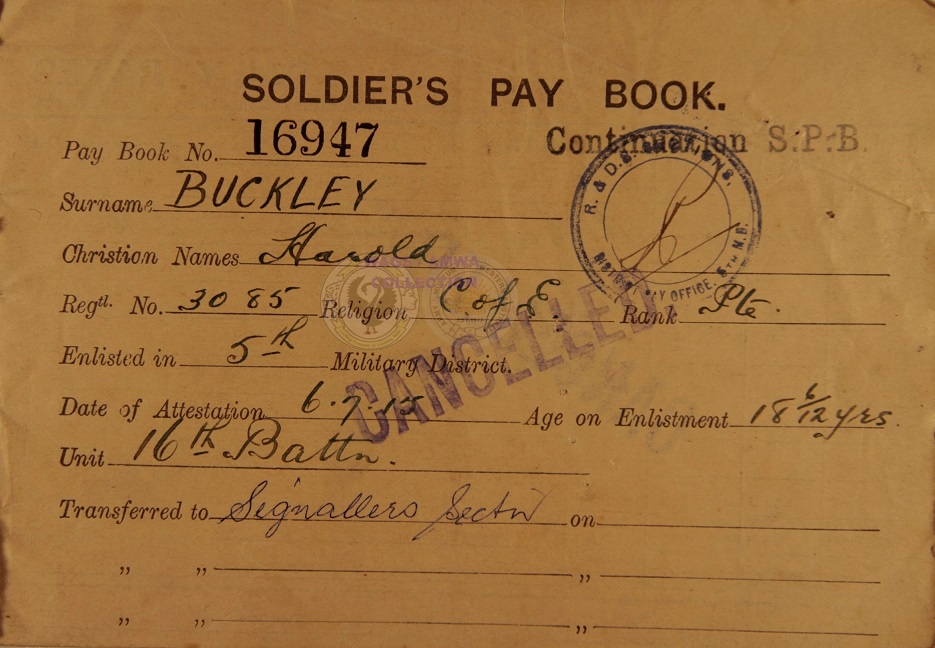 SOLDIER'S PAY BOOK.
Pay Book No. 16947 Continuation S.P.B.
Surname BUCKLEY
Christian Names Harold
COLLECTION
Regtl. No. 3085 Religion C of E. Rank Pte.
Enlisted in 5th Military District.
Date of Attestation 6.7.15 Age on Enlistment 18 6/12 yrs.
Unit 16th Battn.
Transferred to Signallers Sectn on
" " "
" " "
R. & D.S. SECTIONS.
DISTRICT PAY OFFICE. 5TH M.D.
CANCELLED